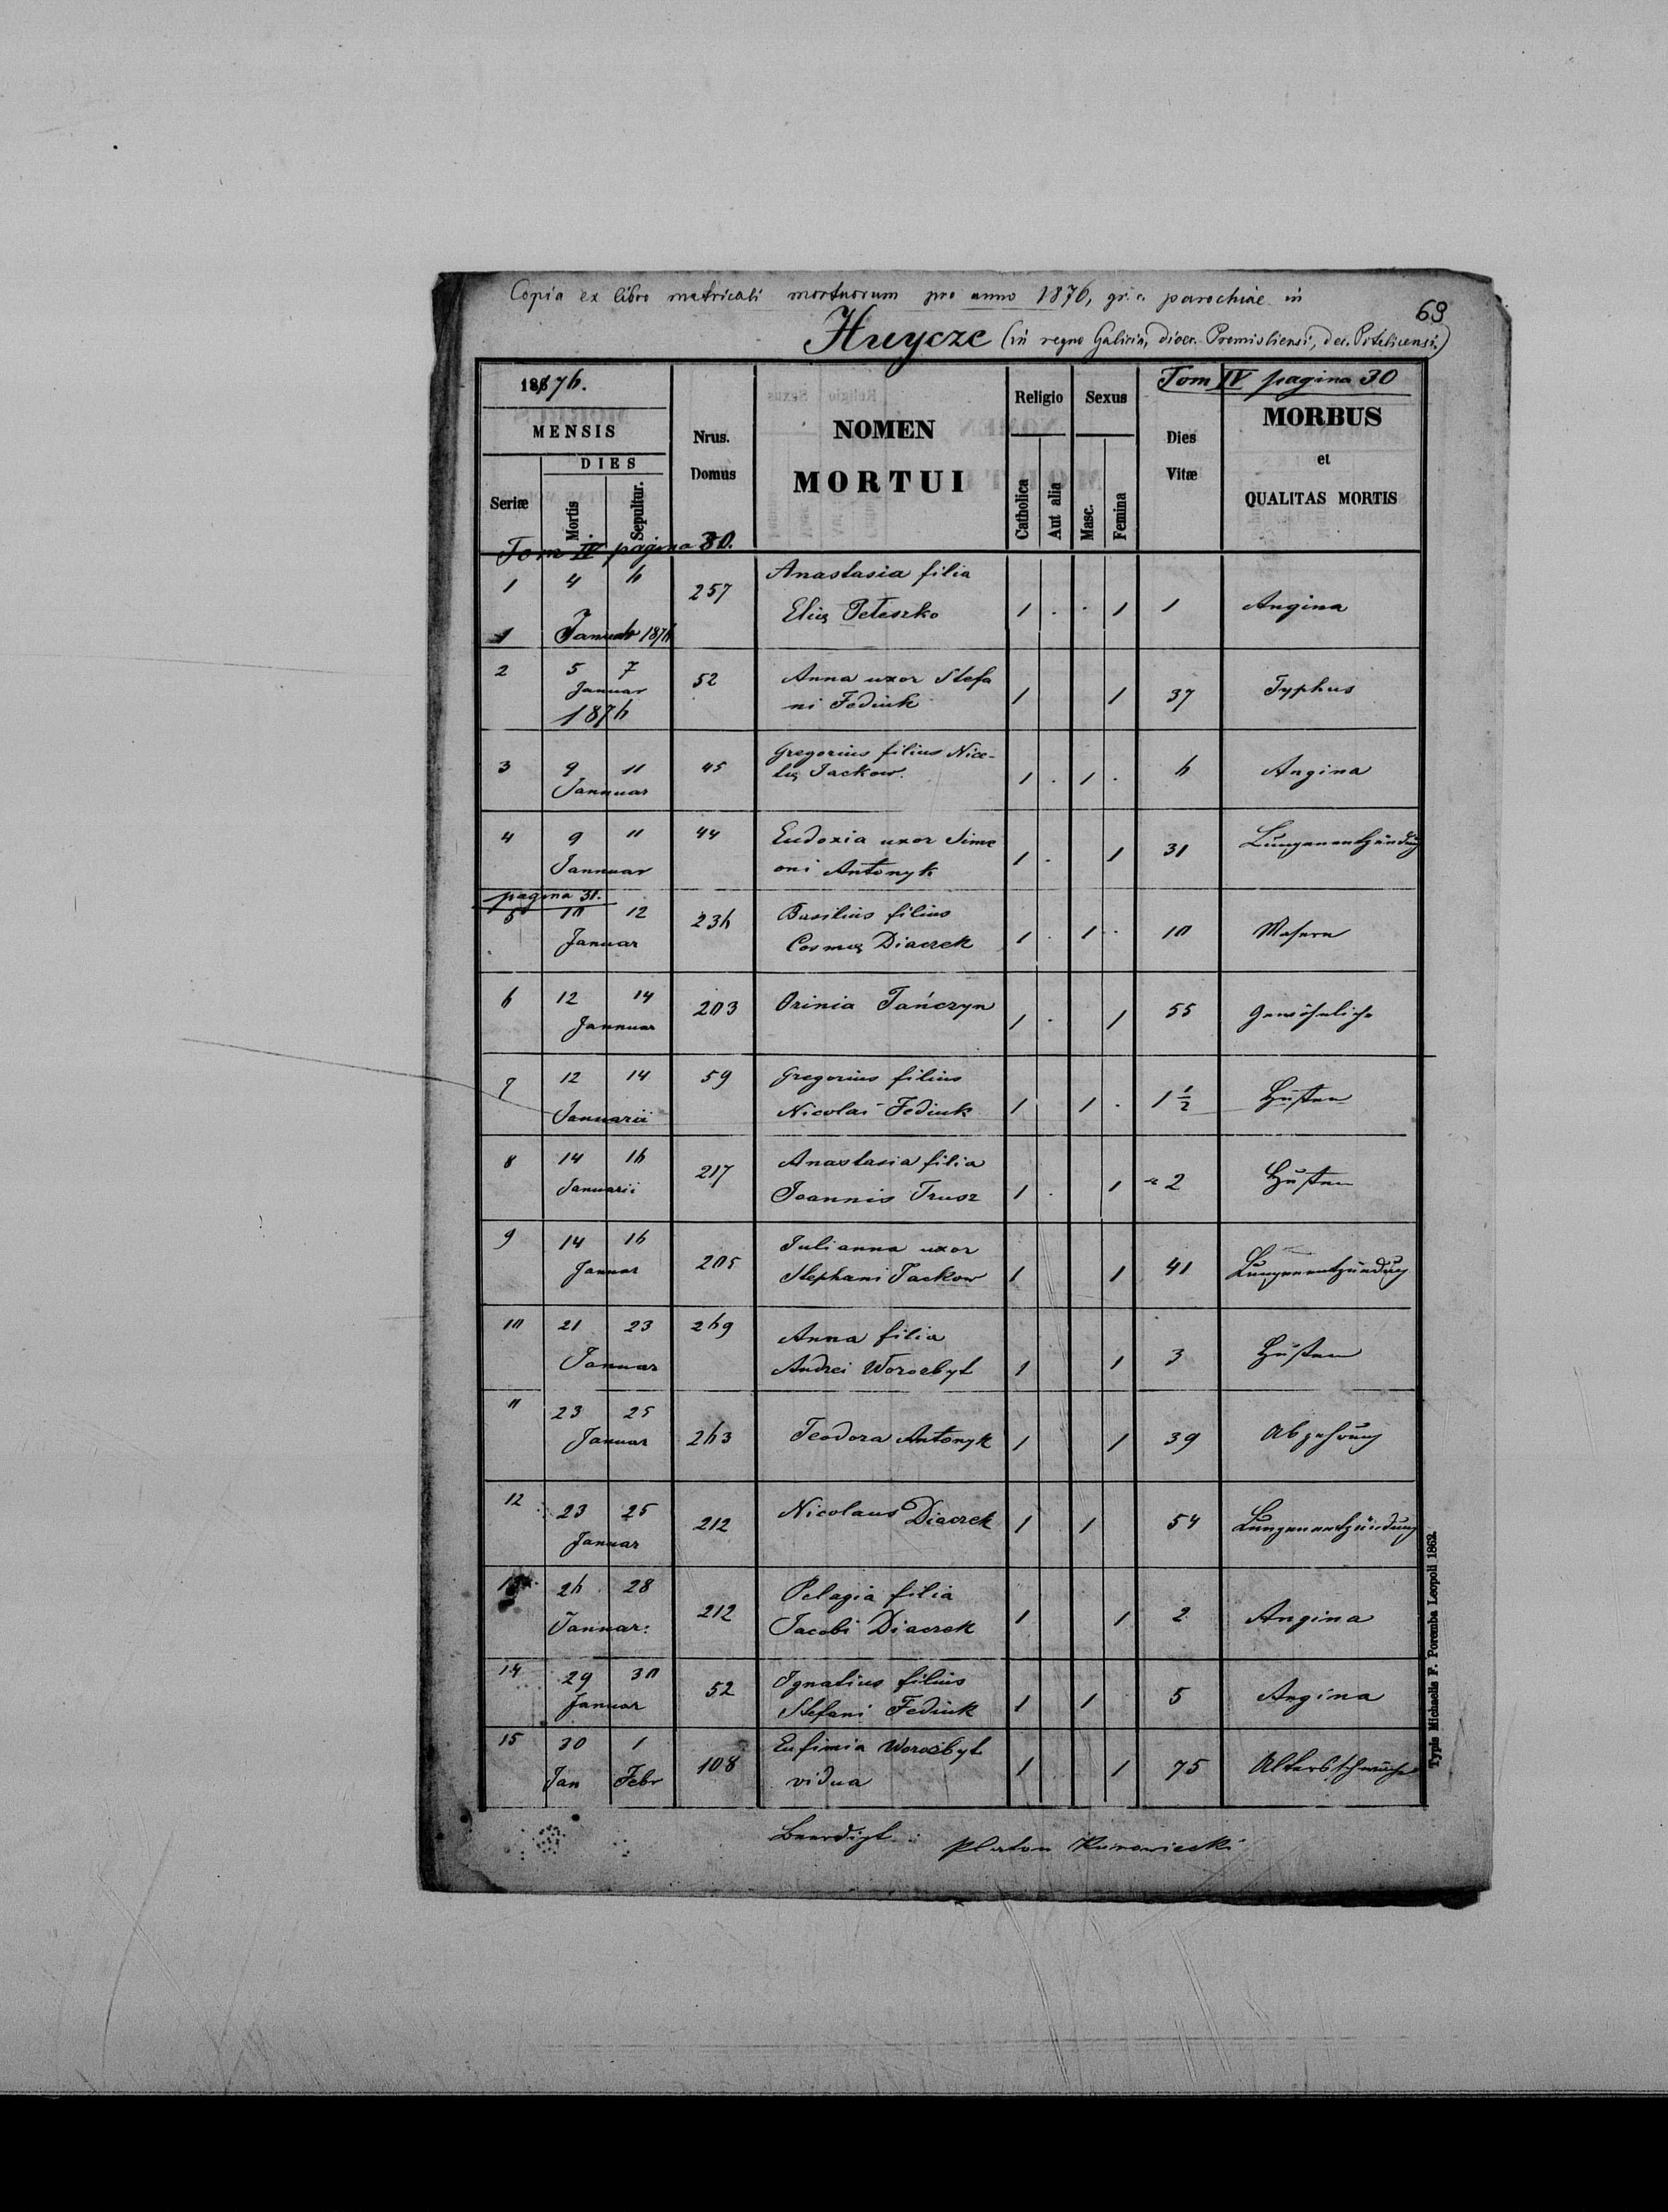 Copia ex libro metricali mortuorum pro anno 1876, gr. c. parochiae in
69
Hujcze (in regno Galicia, dioec. Premisliensi, dec. Potelicensi.)
1876.
MENSIS
DIES
Seriæ
Mortis
Sepultur.
Nrus.
Domus
NOMEN
MORTUI
Religio
Catholica
Aut alia
Sexus
Masc.
Femina
Dies
Vitæ
Tom IV pagina 30
MORBUS
et
QUALITAS MORTIS
Tom IV pagina 30.
1 4 6 257 Anastasia filia
Eliæ Peteszko 1 . . 1 1 Angina
1 Januar 1876
2 5 7 52 Anna uxor Stefa
Januar ni Fediuk 1 1 37 Typhus
1876
3 9 11 45 Gregorius filius Nice-
tæ Jackow. 1 . 1 . 6 Angina
Jannuar
4 9 11 44 Eudoxia uxor Sime
Jannuar oni Antonyk 1 . 1 31 Lungenentzündung
pagina 31.
5 10 12 236 Basilius filius
Januar Cosmæ Diaczek 1 . 1 . 10 Masern
6 12 14 203 Orinia Tańczyn 1 . 1 55 Gewöhnliche
Jannuar
7 12 14 59 Gregorius filius
Januarii Nicolai Fediuk 1 1 . 1 1/2 Husten
8 14 16 217 Anastasia filia
Januarii Joannis Trusz 1 . 1 2 Husten
9 14 16 205 Julianna uxor
Januar Stephani Jackow 1 1 41 Lungenentzündung
10 21 23 269 Anna filia
Januar Andrei Worozbyt 1 1 3 Husten
11 23 25
Januar 263 Teodora Antonyk 1 1 39 Abzehrung
12 23 25 212 Nicolaus Diaczek 1 1 54 Lungenentzündung
Januar
13 26 28 212 Pelagia filia
Jannar: Jacobi Diaczek 1 1 2 Angina
14 29 30 52 Ignatius filius
Januar Stefani Fediuk 1 1 5 Angina
15 30 1 108 Eufimia Worozbyt
Jan Febr vidua 1 1 75 Altersschwäche
Typis Michaelis F. Poremba Leopoli 1862.
Beerdigt: Platon Kunowiecki